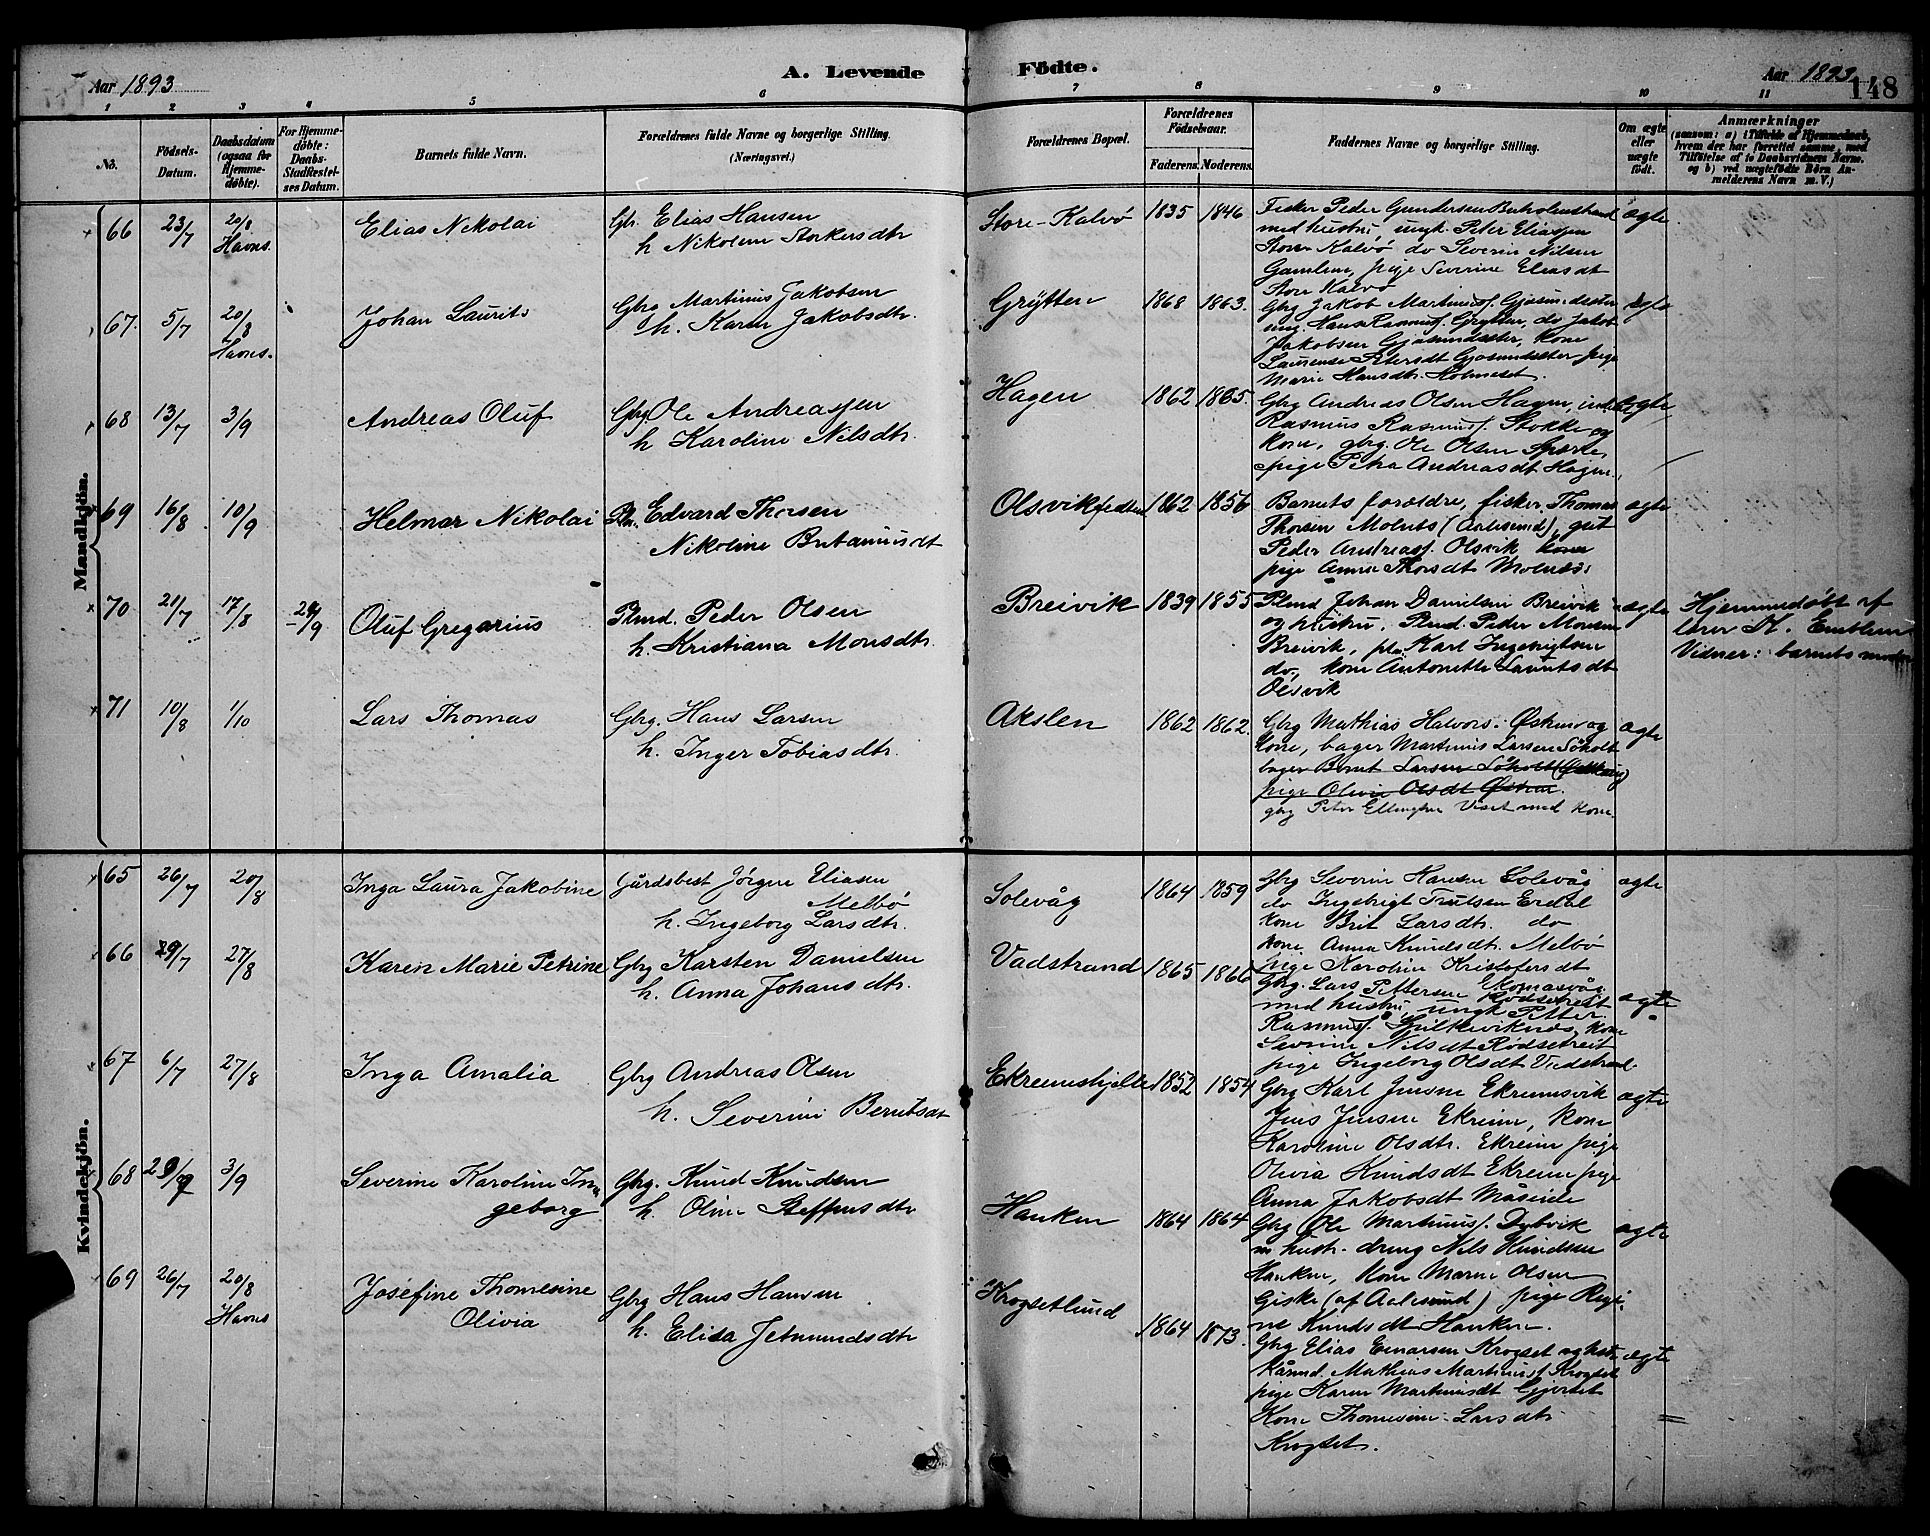 Aar 1893
A. Levende Födte.
Aar 1893
148
1 2 3 4 5 6 7 8 9 10 11
No.
Födsels-Datum.
Daabsdatum (ogsaa for Hjemme-döbte).
For Hjemme-döbte: Daabs-Stadfæstel-ses Datum.
Barnets fulde Navn.
Forældrenes fulde Navne og borgerlige Stilling.
(Næringsvei.)
Forældrenes Bopæl.
Forældrenes Födselsaar.
Faderens. Moderens.
Faddernes Navne og borgerlige Stilling.
Om ægte eller uægte födt.
Anmærkninger
(saasom: a) i Tilfælde af Hjemmedaab,
hvem der har forrettet samme, med
Tilföielse af to Daabsvidners Navne.
og b) ved uægtefödte Börn An-
melderens Navn m. V.)
Mandkjön.
66 23/7 20/8 Havns. Elias Nikolai
Gbr. Elias Hansen
h Nikoline Storkersdtr
Store-Kalvø 1835 1846
Fisker Peder Gundersen
med hustru ungk. Peter Eliassen
Store Kalvø do Severin Nilsen
Gamlem, pige Severine Eliasdt
Store Kalvø
ægte
67. 5/7 20/8 Havns. Johan Laurits
Gbrg Martinus Jakobsen
h. Karen Jakobsdtr.
Grytten 1868 1863.
Gbrg Jakob Martinuss. Gjøsundsæter
ung. Hans Rasmuss. Grytten, do Jakob
Jakobsen Gjøsundsæter, kone
Laurense Petersdt Gjøsundsæter pige
Marie Hansdtr. Holmeset.
ægte
68 13/7 3/9 Andreas Oluf
Gbrg. Ole Andreassen
h Karoline Nilsdtr.
Hagen 1862 1865.
Gbrg Andreas Olsen Hagen,
Rasmus Rasmuss. Stokke og
kone, gbrg. Ole Olsen
pige Petra Andreasdt Hagen.
ægte
69 16/8 10/9 Helmer Nikolai
Edvard Thorsen
Nikoline Bertanusdt
Olsvikfedten 1862 1856
Barnets forældre, fisker Thomas
Thorsen Molnes (Aalesund), gut
Peder Andreass. Olsvik kone
pige Anna Thorsdt Molnes.
ægte
70 21/7 17/8 24/9 Oluf Gregarius
Plmd. Peder Olsen
h. Kristiana Monsdtr.
Breivik 1839 1855
Plmd Johan Danielsen Breivik
og hustru. Plmd. Peder Monsen
Breivik, Karl Ingebrigtsen
do, kone Antonette Lauritsdt
Olsvik
ægte
Hjemmedøbt af
lærer K. Emblem
Vidner: barnets
71 10/8 1/10 Lars Thomas
Gbrg. Hans Larsen
h. Inger Tobiasdtr.
Akslen 1862 1862.
Gbrg Mathias Halvors. og
kone, bager Martinus Larsen Søholt
bager Bernt Larsen Søholt
pige Olivie Olsdt
gbrg Peter Ellingsen Viset med kone.
ægte
Kvindekjön.
65 26/7 20/8 Inga Laura Jakobine
Gårdsbest Jørgen Eliasen
Melbø
h. Ingeborg Larsdtr.
Solevåg 1864 1859
Gbrg Severin Hansen Solevåg
do Ingebrigt Trulsen Erdal
kone Brit Larsdtr. do
kone Anna Knudsdtr. Melbø
pige Karoline Kristofersdt
ægte
66 29/7 27/8 Karen Marie Petrine
Gbrg Karsten Danielsen
h. Anna Johansdtr.
Vadstrand 1865 1866
Gbrg. Lars Pettersen
med hustru, ungk Petter
Rasmuss. Spilkeviknes, kone
Severine Nilsdt Rødsetreit
pige Ingeborg Olsdt Vadstrand
ægte
67 6/7 27/8 Inga Amalia
Gbrg Andreas Olsen
h. Severine Berntsdt
Ekremshjelle 1852 1854
Gbrg Karl Jensen Ekremsvik
Jens Jensen Ekreim, kone
Karoline Olsdtr. Ekreim pige
Olivia Knudsdt Ekreim pige
Anna Jakobsdt Måseide
ægte
68 29/7 3/9 Severine Karoline In-
geborg
Gbrg. Knud Knudsen
h. Oline Steffensdtr
Hanken 1864 1864
Gbrg Ole Martinuss. Dybvik
m hustr. dreng Nils Knudsen
Hanken, kone Marie Olsen
Giske (af Aalesund) pige Regi-
ne Knudsdt Hanken.
ægte
69 26/7 20/8 Havns Josefine Thomesine
Olivia
Gbrg Hans Hansen
h. Elisa Jetmundsdtr
Krogsetlund 1864 1873.
Gbrg Elias Einarsen Krogset
Kårmd. Mathias Martinuss Krogset
pige Karen Martinusdt Gjerset
Kone Thomesine Larsdtr
Krogset.
ægte